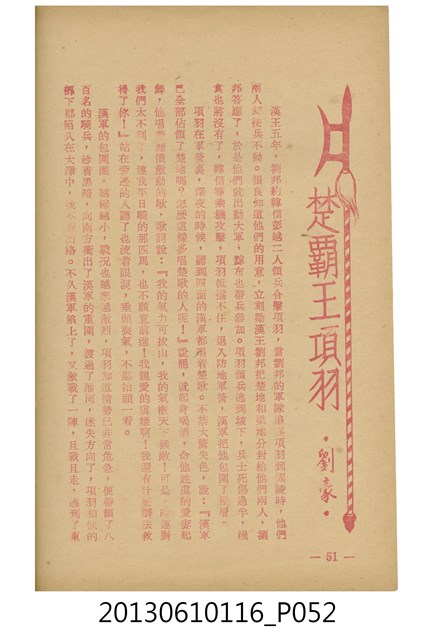 楚霸王項羽
・劉豪・
漢王五年，劉邦約韓信彭越二人領兵合擊項羽，當劉邦的軍隊追逐項羽到固陵時，他們
兩人却按兵不動。張良知道他們的用意，立刻勸漢王劉邦把楚地和梁地分封給他們兩人，劉
邦答應了，於是他們就出動大軍，黥布也帶兵參加。項羽領兵逃到垓下，兵士死傷過半，糧
食也將沒有了，韓信等乘機攻擊，項羽抵擋不住，退入防地軍營，漢軍把他包圍了幾層。
項羽在軍營裏，深夜的時候，聽到四面的漢軍都唱着楚歌。不禁大驚失色，說：『漢軍
已全部佔領了楚地嗎？怎麼這樣多唱楚歌的人呢！』說罷，就起身喝酒，命他姓虞的愛妾起
舞，他唱着激動的歌，歌詞說：『我的氣力可拔山，我的氣概天下無敵！可是，時運對
我們太不利了，連我平日騎的那匹馬，也不願意前進！我親愛的虞姬啊！我還有什麼辦法救
得了你！』站在旁邊的人聽了也流着眼淚，垂頭喪氣，不能抬頭一看。
漢軍的包圍圈，越縮越小，戰況也越來越激烈，項羽知道情勢已非常危急，便帶領了八
百名的騎兵，趁着黑暗，向南方衝出了漢軍的重圍，渡過了淮河，迷失方向了，項羽和他的
部下都陷入在大澤中，找不到出路。不久漢軍追上了，又激戰了一陣，且戰且走，逃到了東
— 51 —
20130610116_P052